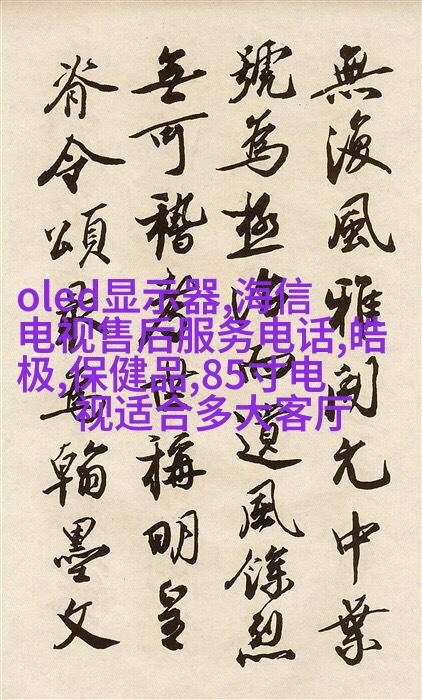 無復風雅開元中葉
號為極治而遺風餘烈
無可稽考世稱明皇
脊令頌最為翰墨文
oled显示器,海信
电视售后服务电话,皓
极,保健品,85寸电
视适合多大客厅